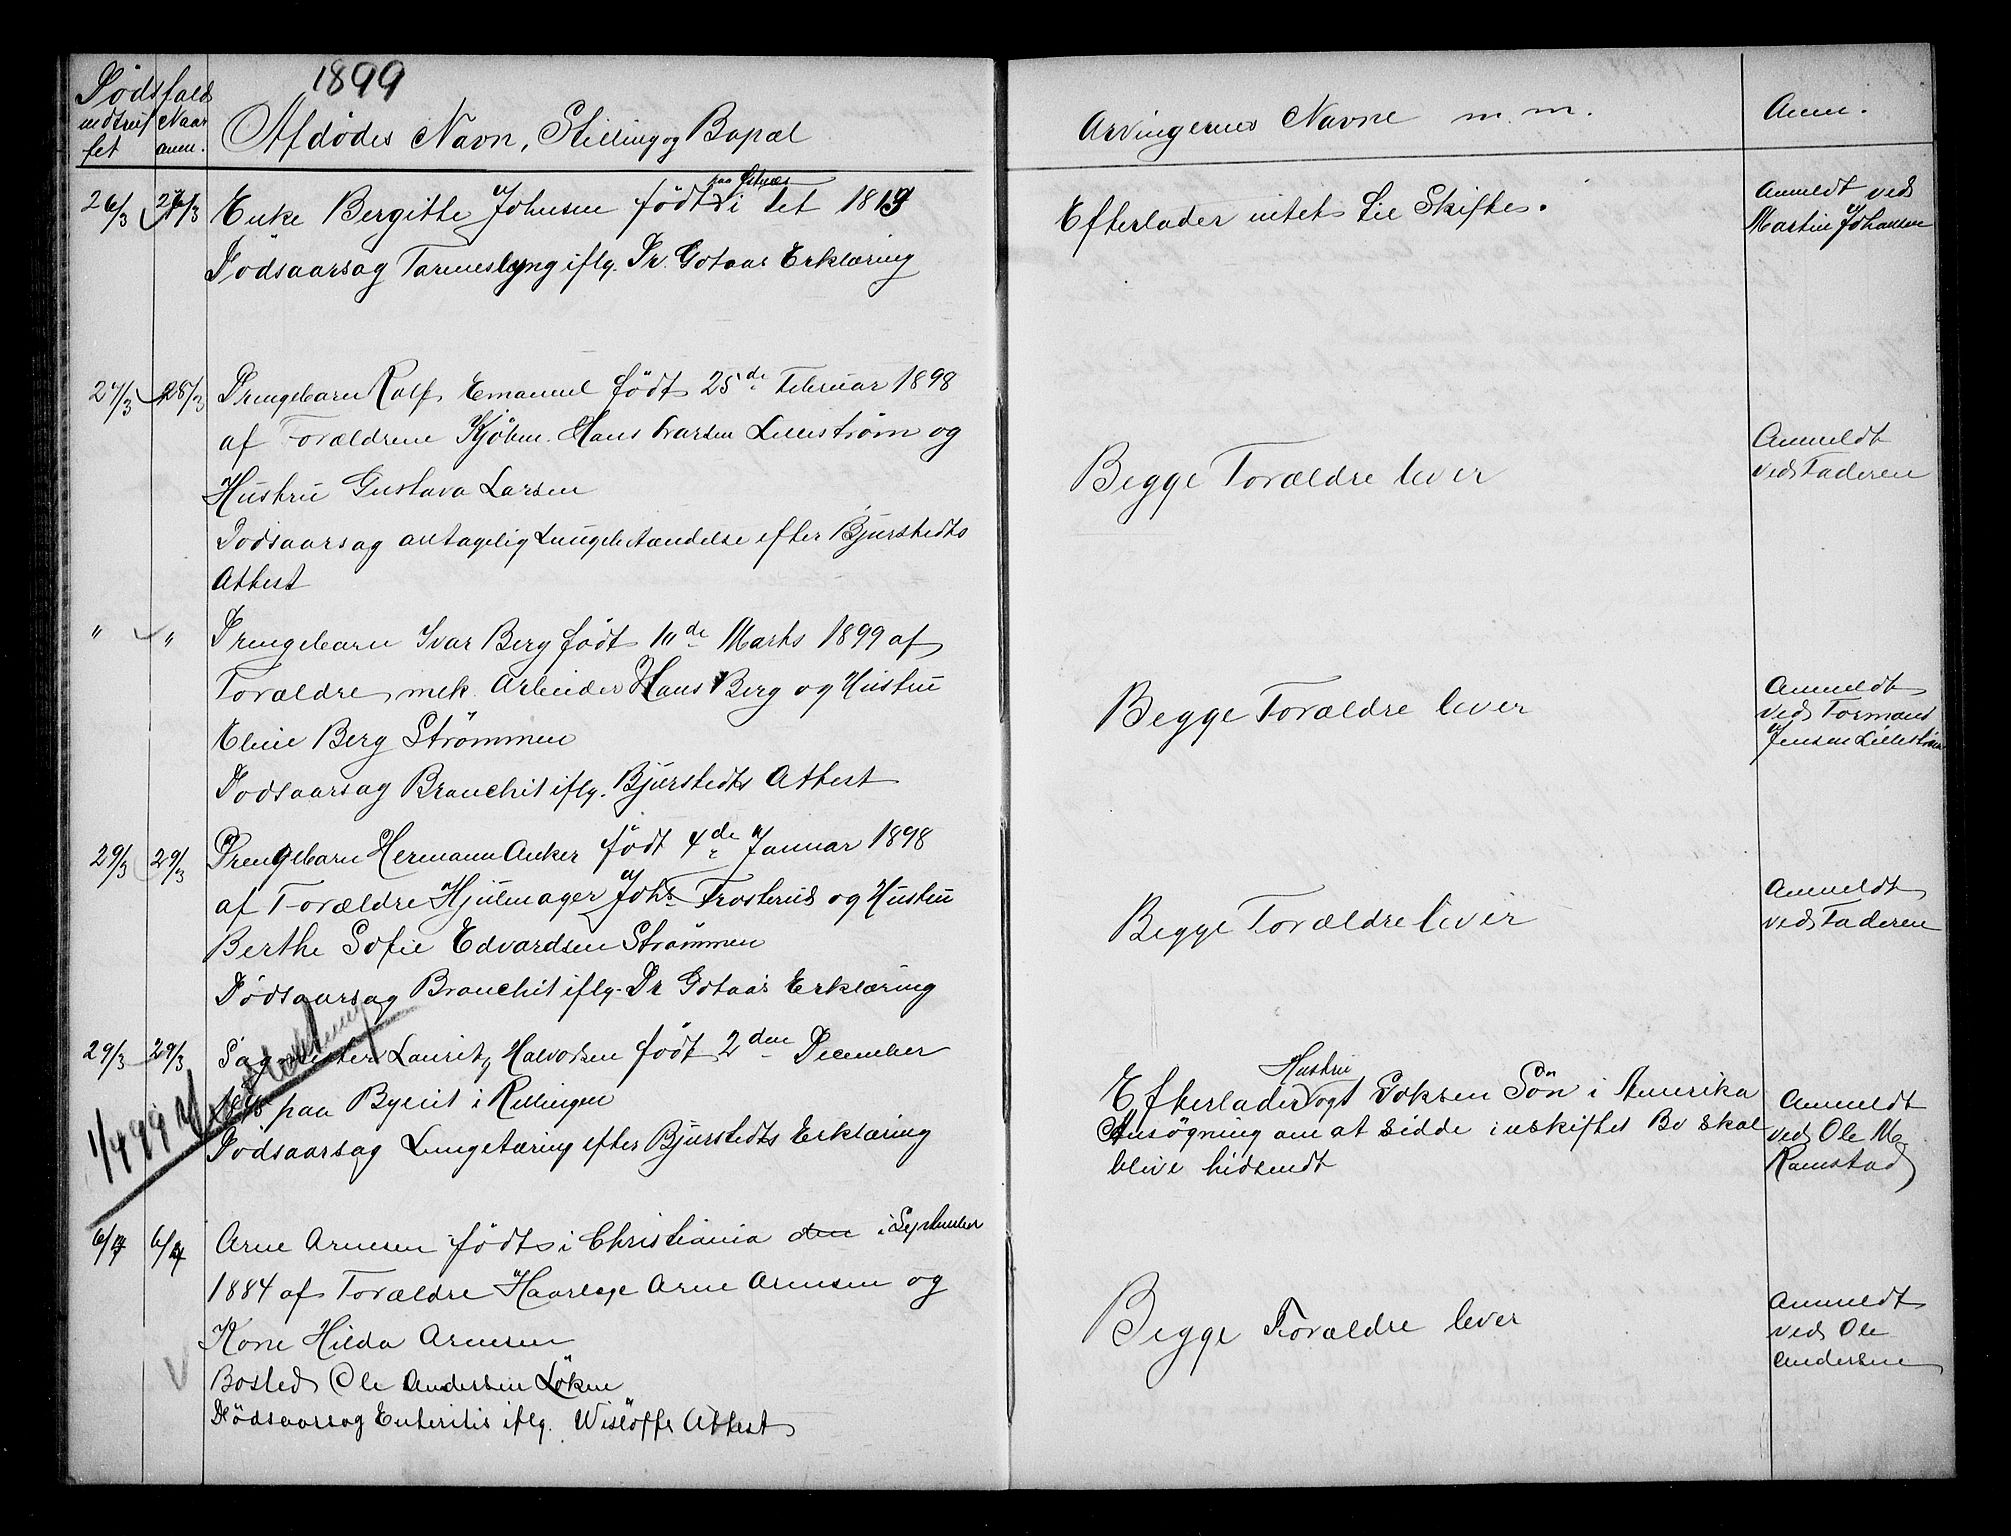 1899
Dødsfald
indtruffet
Naar anm.
Afdødes Navn, Stilling og Bopæl
Arvingernes Navne m. m.
Anm.
26/3 27/3 Enke Bergitte Johnsen født i Fet 1819
Dødsaarsag Tarmeslyng iflg. Dr. Gotaas Erklæring
Efterlader intet til Skifte.
Anmeldt ved
Martin Johansen
27/3 28/3 Drengebarn Ralf Emanuel født 25de Februar 1898
af Forældrene Kjøbm. Hans Larsen Lillestrøm og
Hustru Gustava Larsen
Dødsaarsag antagelig Lungebetændelse efter Bjurstedts
Attest
Begge Forældre lever
Anmeldt
ved Faderen
" " Drengebarn Ivar Berg født 10de Marts 1899 af
Forældre mek. Arbeider Hans Berg og Hustru
Eline Berg Strømmen
Dødsaarsag Bronchit iflg. Bjurstedts Attest
Begge Forældre lever
Anmeldt
ved Formand
Jensen Lillestrøm
29/3 29/3 Drengebarn Hermann Anker født 4de Januar 1898
af Forældre Hjulmager Johs. Frosterud og Hustru
Berthe Sofie Edvardsen Strømmen
Dødsaarsag Bronchit iflg. Dr Gotaas Erklæring
Begge Forældre lever
Anmeldt
ved Faderen
29/3 29/3 Lauritz Halvorsen født 2den December
paa Byeiet i Rællingen
Dødsaarsag Lungetæring efter Bjurstedts Erklæring
1/4 99
Hustru
Efterlader og 1 voksen Søn i Amerika
Ansøgning om at sidde i uskiftet Bo skal
blive hidsendt
Anmeldt
ved Ole M.
Ramstad
6/4 6/4 Arne Arnesen født i Christiania den i September
1884 af Forældre Arne Arnesen og
Kone Hilda Arnesen
Bosted Ole Andersen Løken
Dødsaarsag Enteritis iflg. Wisløffs Attest
Begge Forældre lever
Anmeldt
ved Ole
Andersen